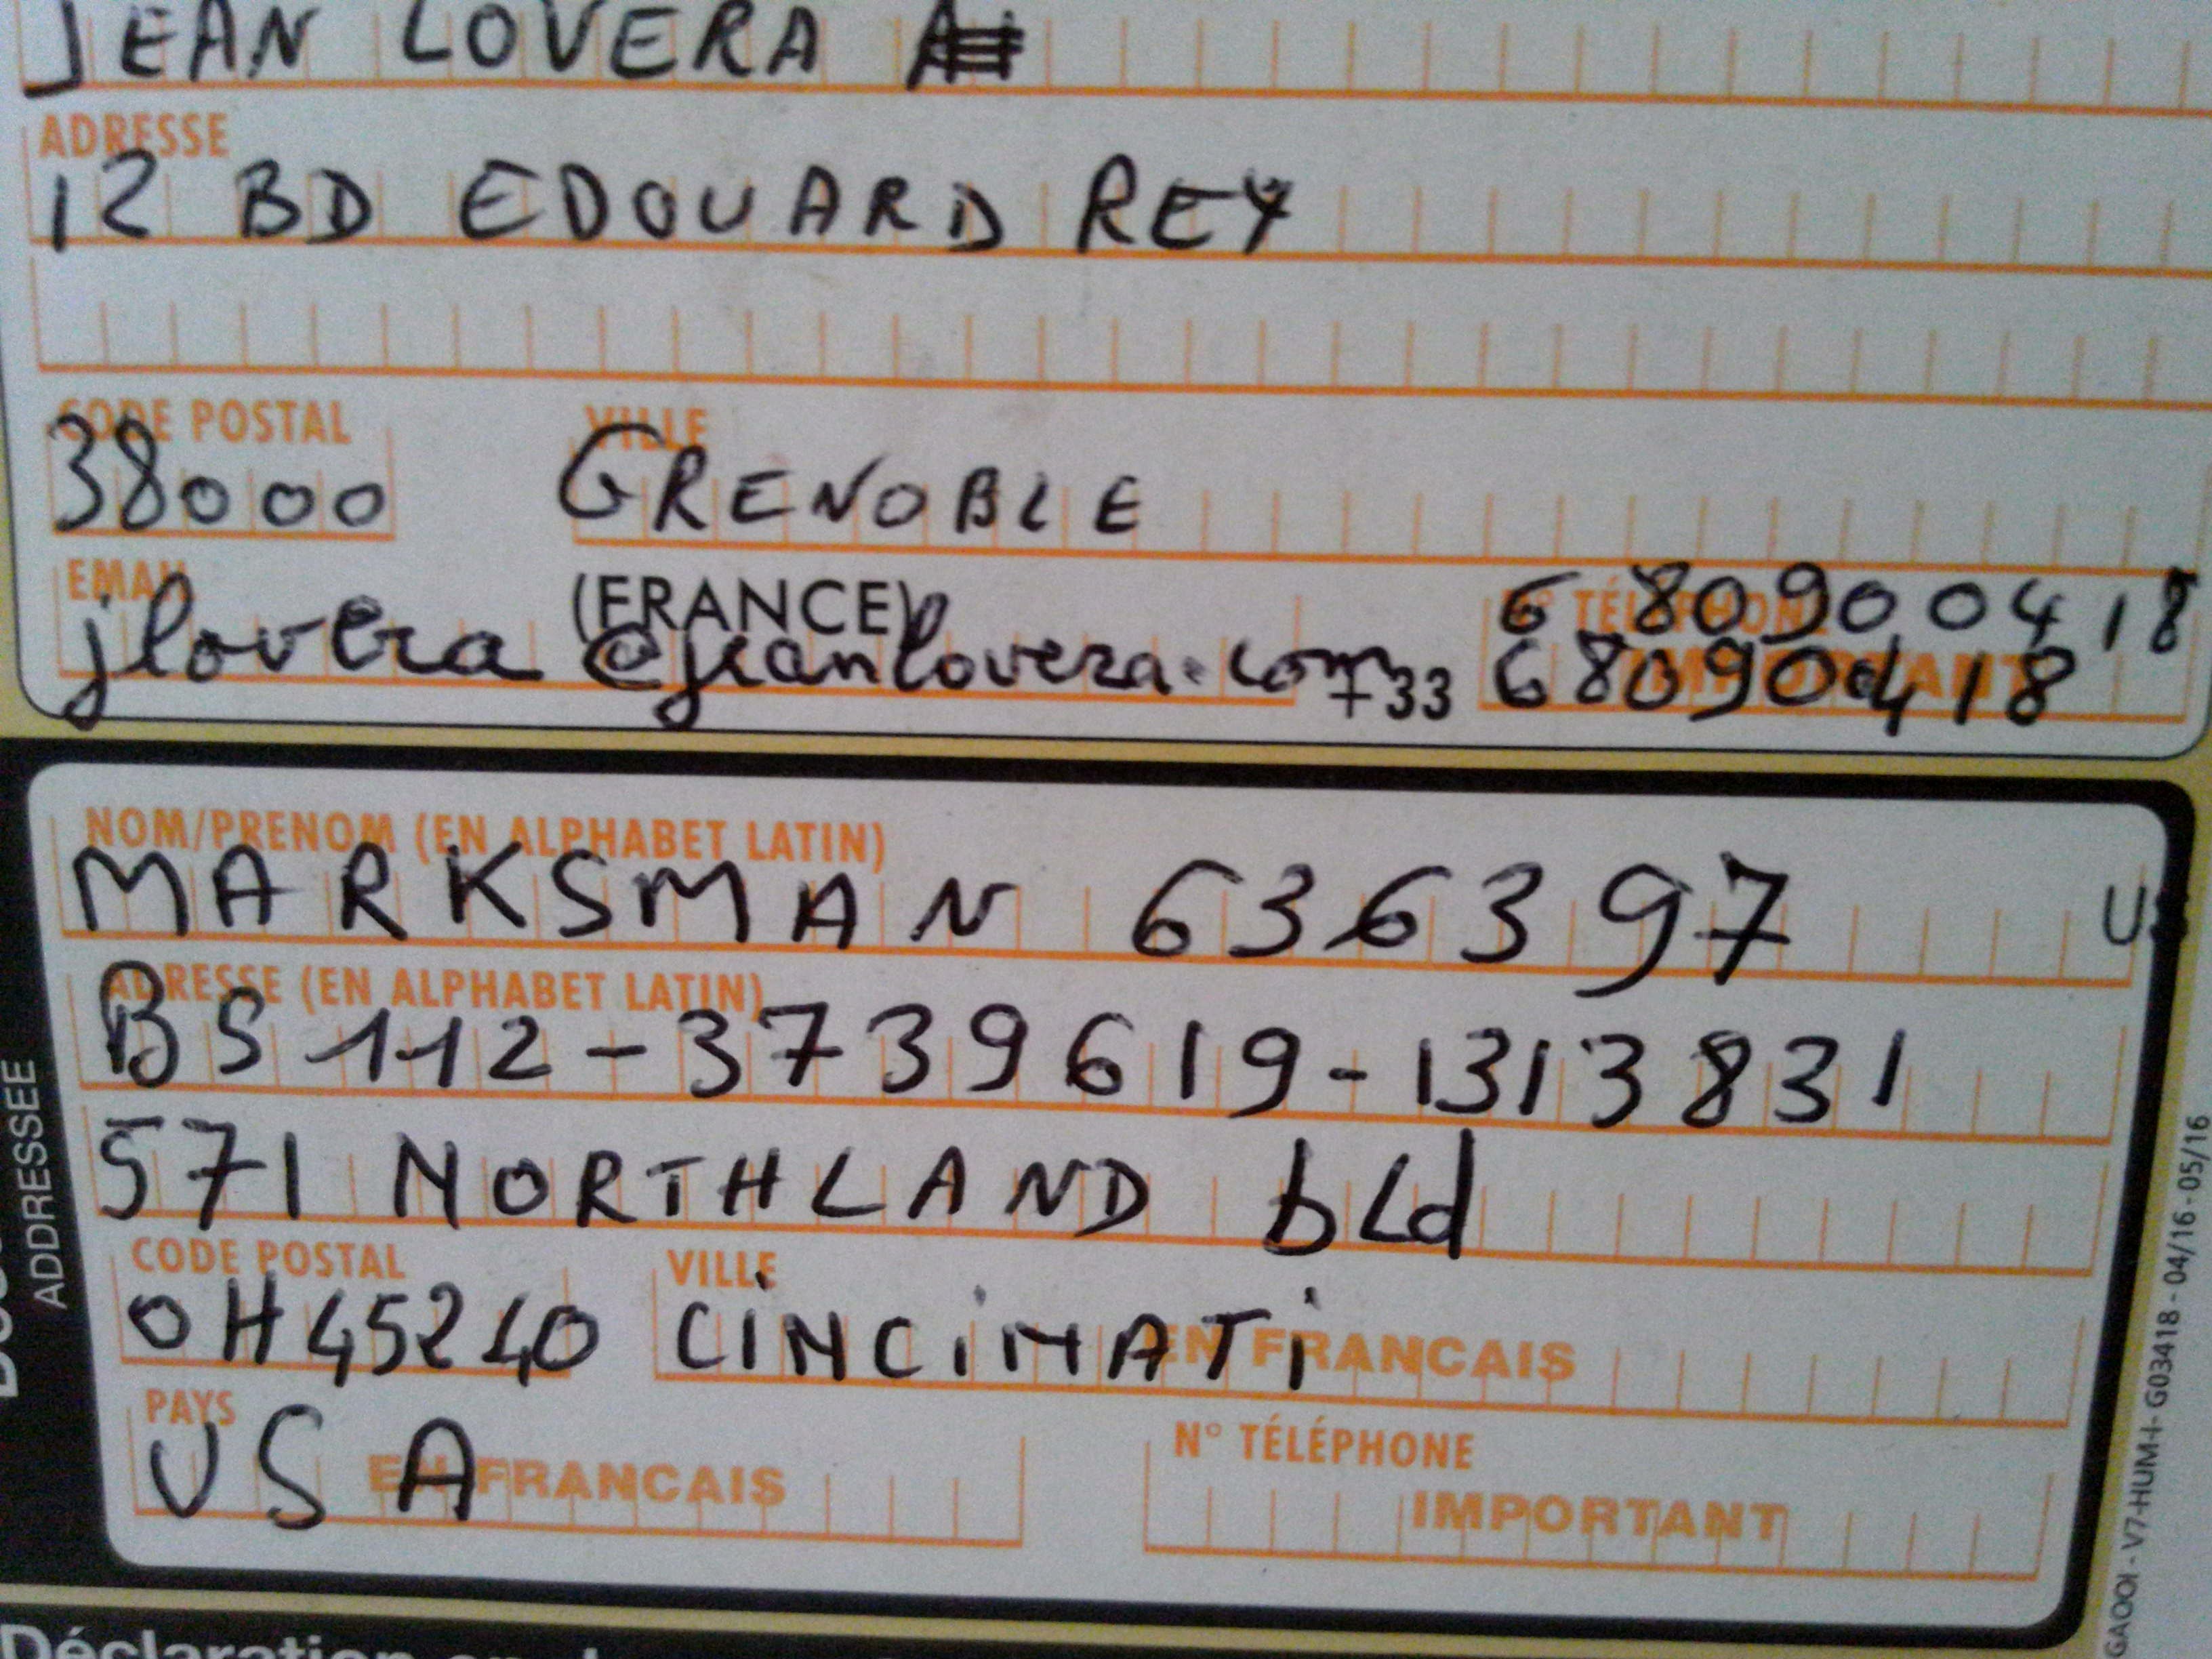 JEAN LOVERA
ADRESSE
12 BD EDOUARD REY
CODE POSTAL VILLE
38000 GRENOBLE
EMAIL (FRANCE) N° TÉLÉPHONE 6 80900418
jlovera@jeanlovera.com +33 680900418 IMPORTANT
NOM/PRENOM (EN ALPHABET LATIN)
MARKSMAN 636397 U
ADRESSE (EN ALPHABET LATIN)
BS 112-3739619-1313831
571 NORTHLAND bLd
CODE POSTAL VILLE
OH45240 CINCIMATI EN FRANCAIS
PAYS N° TÉLÉPHONE
USA EN FRANCAIS IMPORTANT
ADDRESSEE
GAOOI - V7-HUM-I- G03418 - 04/16 - 05/16
Déclaration en